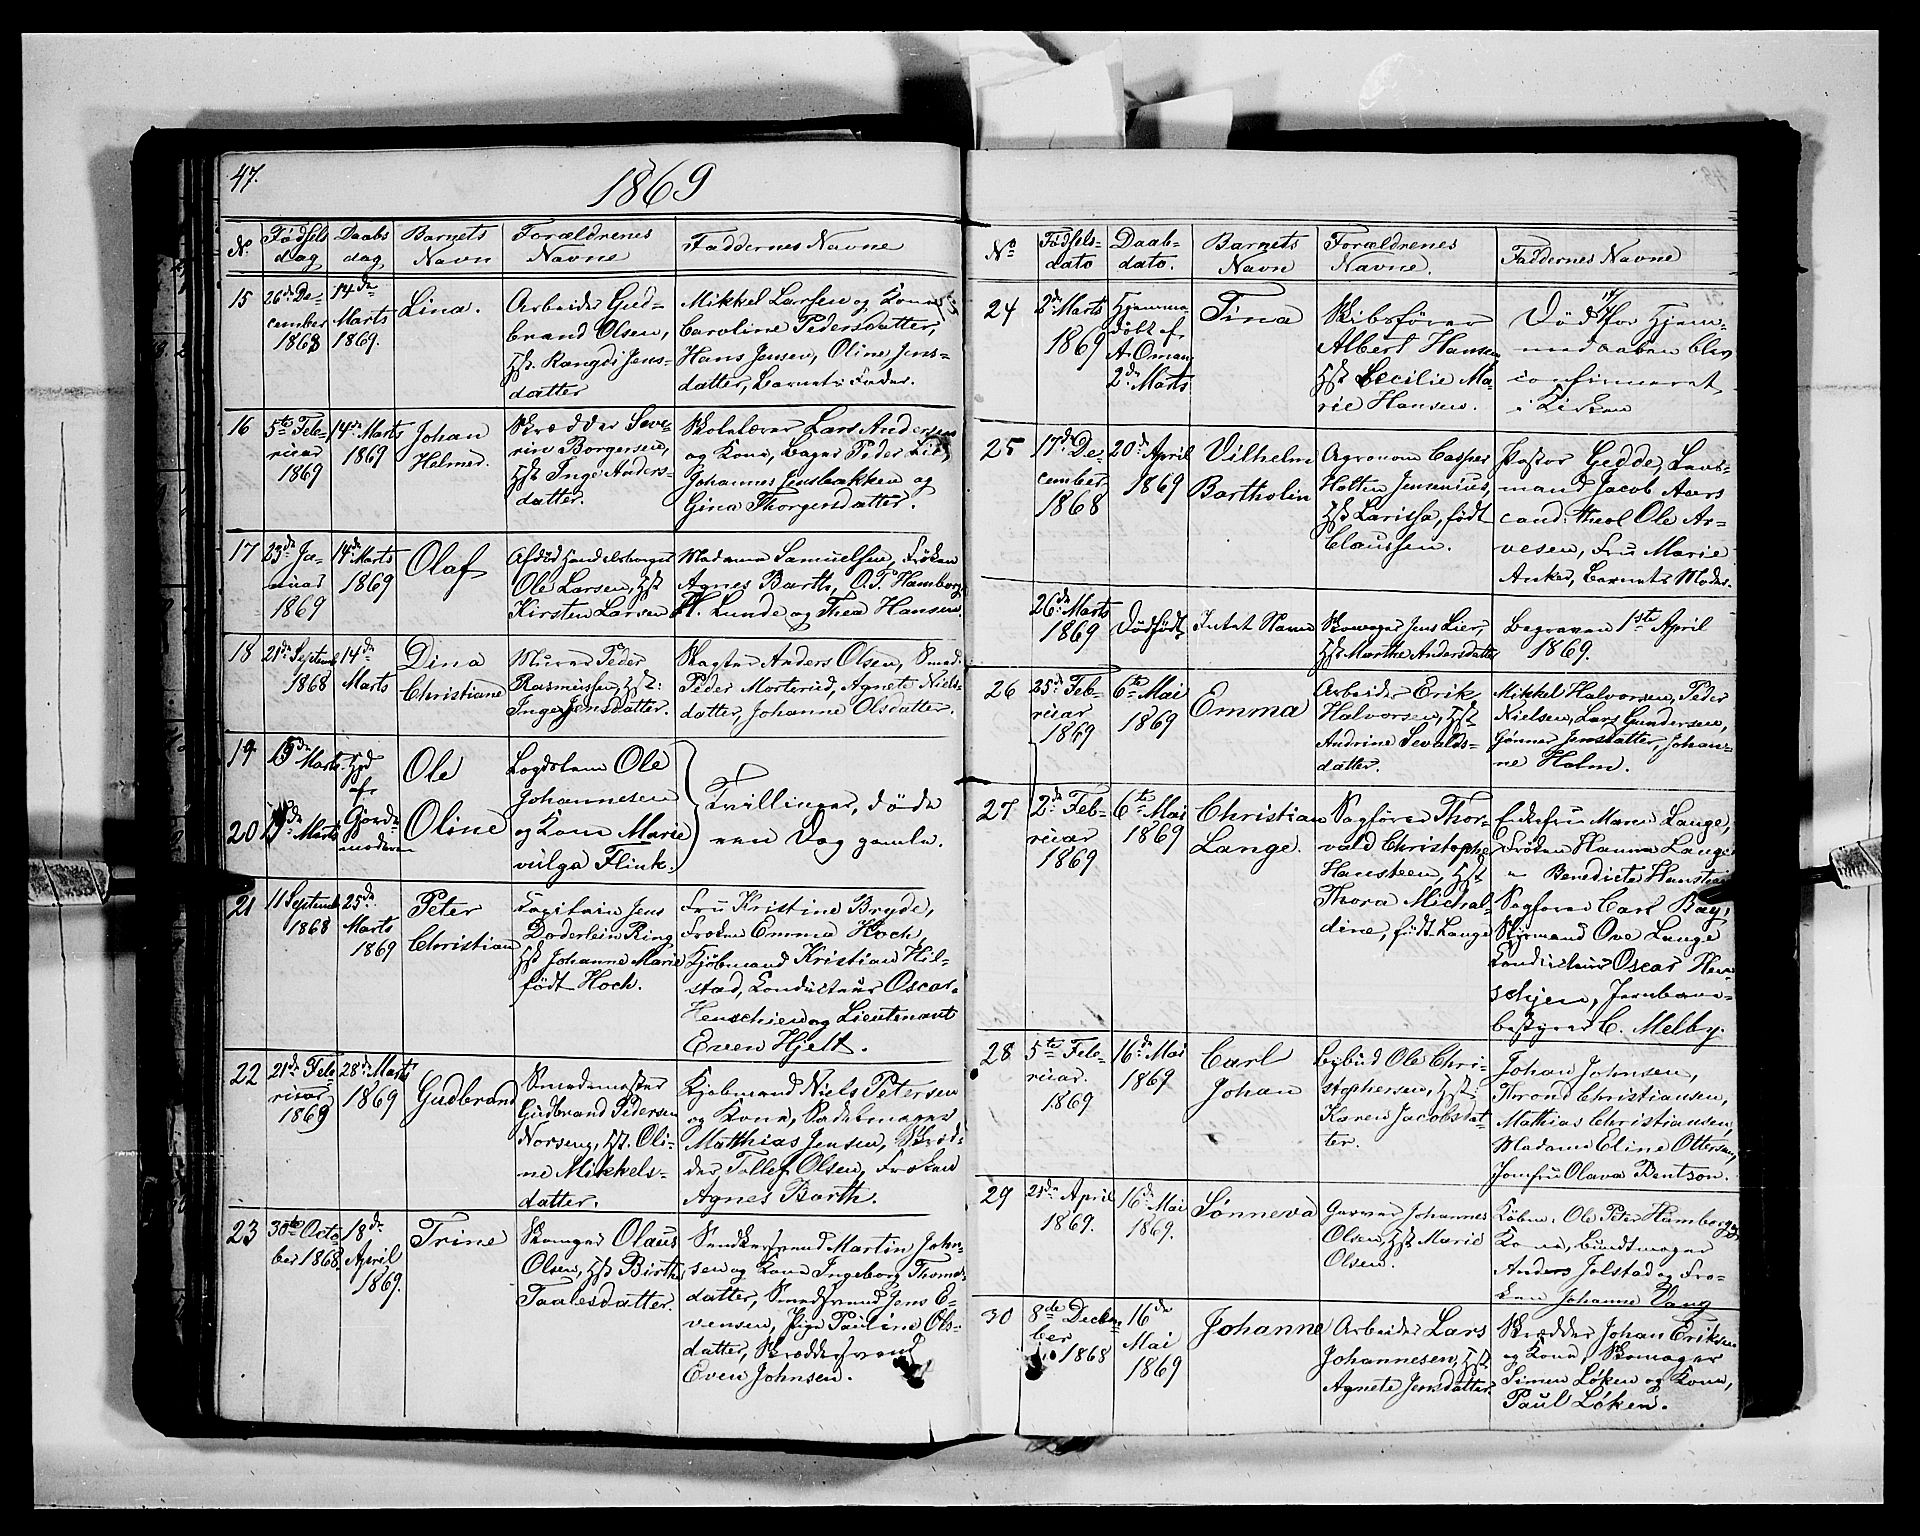 47.
1869
N.
Fødsels
dag
Daabs
dag
Barnets
Navn
Forældrenes
Navne
Faddernes Navne
15
26de De-
cember
1868
14de
Marts
1869.
Lina.
Arbeider Gud-
brand Olsen,
Hst. Rangdi Jens-
datter
Mikkel Larsen og Kone
Caroline Pedersdatter,
Hans Jensen, Oline Jens-
datter, Barnets Fader.
16
5te Feb-
ruar
1869
14de Marts
1869
Johan
Helmer.
Skrædder Seve-
rin Borgersen,
Hst Inge Anders-
datter.
Skolelærer Lars Andersen
og Kone, Bager Peder Lie,
Johannes Jensbakken og
Gina Thorgersdatter.
17
23de Ja-
nuar
1869
14de Marts
1869
Olaf
Afdød Handelsborger
Ole Larsen, Hst
Kirsten Larsen
Madame Samuelsen, Frøken
Agnes Barth, O. P. Hamborg
H. Lunde og Thea Hansen.
18
21de Septemb
1868
14de
Marts
Dina
Christiane
Murer Peder
Rasmussen, Hst:
Inge Jensdatter.
Slagter Anders Olsen, Smed.
Peder Morterud, Agnete Niels-
datter, Johanne Olsdatter.
19
15de Marts
Hjd
af
Ole
Logslem Ole
Johannesen
Tvillinger, døde
20
15de Marts
Gjorde-
moderen
Oline
og Kone Marie
vulga Flink.
een Dag gamle.
21
11 Septemb
1868
25de
Marts
1869
Peter
Christian
Capitain Jens
Doderlein Ring
Hst Johanne Marie
født Hoch.
Fru Kristine Bryde,
Frøken Emma Hoch,
Kjøbmand Kristian Hil-
stad, Conducteur Oscar
Henschien og Lieutenant
Even Hjelt.
22
21de Feb-
ruar
1869
28de Marts
1869
Gudbrand
Smedemester
Gudbrand Pedersen
Norseng, Hst. Oli-
ne Mikkels-
datter.
Kjøbmand Niels Petersen
og Kone, Sadelmager
Matthias Jensen, Skræd-
der Tollef Olsen, Frøken
Agnes Barth.
23
30te Octo-
ber 1868.
18de
April
1869.
Trine
Skomager Olaus
Olsen, Hst Birthe
Taalesdatter.
Snedkersvend Martin John-
sen og Kone Ingeborg Thomas-
datter, Smedsvend Jens E-
vensen, Pige Pauline Ols-
datter, Skræddersvend
Even Johnsen.
No
Fødsels-
dato
Daab-
dato.
Barnets
Navn
Forældrenes
Navne.
Faddernes Navne
24
2de Marts
1869
Hjemme-
døbt af
A. Oman
2de Marts
Tina
Skibsfører
Albert Hansen
Hst Cecilie Ma-
rie Hansen.
Død før Hjem-
medaaben blev
confirmeret
i Kirken
25
17de De-
cember
1868
20de April
1869
Vilhelm
Bartholin
Agronom Casper
Holten Jensenius,
Hst Larissa, født
Claussen.
Pastor Gedde, Lens-
mand Jacob Aars
cand: theol Ole Ar-
vesen, Fru Marie
Anker, Barnets Moder.
26de Marts
1869
Dødfødt
Intet Navn
Skomager Jens Lier,
Hst Marthe Andersdatter
Begraven 1ste April
1869.
26
25de Feb-
ruar
1869
6te Mai
1869
Emma
Arbeider Erik
Halvorsen, Hst
Andrine Sevalds-
datter.
Mikkel Halvorsen, Peder
Nielsen, Lars Gundersen,
Gønner Jensdatter, Johan-
ne Holm.
27
2de Feb-
ruar
1869
6te Mai
1869
Christian
Lange.
Sagfører Thor-
vald Christopher
Hansteen, Hst
Thora Michal-
dine, født Lange
Enkefru Maren Lange,
Frøken Hanna Lange
" Benedicte Hansteen
Sagfører Carl Bay,
Styrmand Ove Lange
Conducteur Oscar Hen-
schien, Jernbane-
bestyrer C. Melby.
28
5te Feb-
ruar.
1869
16de Mai
1869
Carl
Johan
Lybud Ole Chri-
stophersen, Hst:
Karen Jacobsdat-
ter.
Johan Johnsen,
Thrond Christiansen,
Mathias Christiansen,
Madame Eline Ottersen,
Jomfru Olava Bentson.
29
21de April
1869.
16de
Mai
1869.
Sønneva
Garver Johannes
Olsen, Hst Marie
Olsen.
Købm. Ole Peter Hamborg og
Kone, Bundtmager
Anders Jolstad og Frø-
ken Johanne Vang
30
8de Decem-
ber
1868
16de
Mai
1869
Johanne
Arbeider Lars
Johannesen, Hst
Agnete Jensdatter.
Skrædder Johan Eriksen
og Kone, Skomager
Simen Løken og Kone,
Paul Løken.